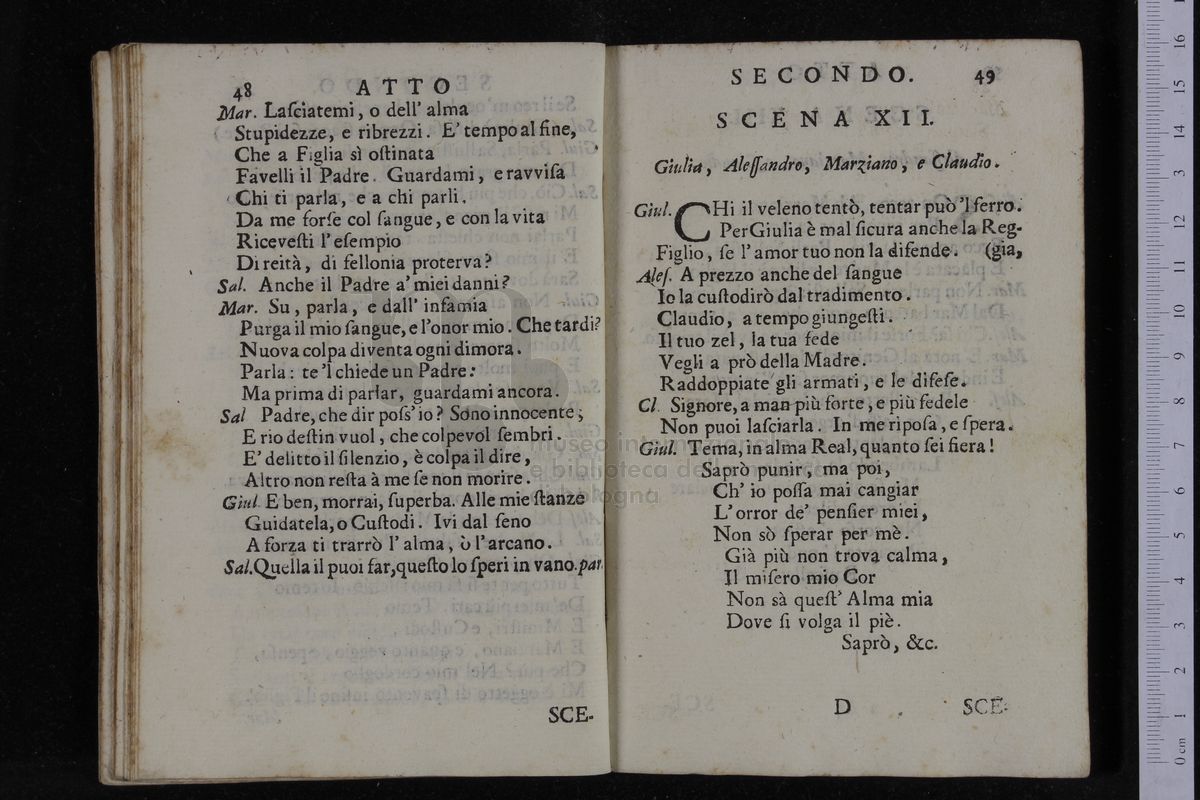 48 ATTO
Mar. Laſciatemi, o dell' alma
Stupidezze, e ribrezzi. E' tempo al fine,
Che a Figlia sì oſtinata
Favelli il Padre. Guardami, e ravviſa
Chi ti parla, e a chi parli.
Da me forſe col ſangue, e con la vita
Riceveſti l' eſempio
Di reità, di fellonia proterva?
Sal. Anche il Padre a' miei danni?
Mar. Su, parla, e dall' infamia
Purga il mio ſangue, e l'onor mio. Che tardi?
Nuova colpa diventa ogni dimora.
Parla: te 'l chiede un Padre:
Ma prima di parlar, guardami ancora.
Sal Padre, che dir poſs' io? Sono innocente;
E rio deſtin vuol, che colpevol ſembri.
E' delitto il ſilenzio, è colpa il dire,
Altro non reſta à me ſe non morire.
Giul. E ben, morrai, ſuperba. Alle mie ſtanze
Guidatela, o Cuſtodi. Ivi dal ſeno
A forza ti trarrò l' alma, ò l' arcano.
Sal. Quella il puoi far, queſto lo ſperi in vano. par.
SCE-
SECONDO. 49
SCENA XII.
Giulia, Aleſſandro, Marziano, e Claudio.
Giul. CHi il veleno tentò, tentar può 'l ferro.
Per Giulia è mal ſicura anche la Reg-
Figlio, ſe l' amor tuo non la difende. (gia,
Aleſ. A prezzo anche del ſangue
Io la cuſtodirò dal tradimento.
Claudio, a tempo giungeſti.
Il tuo zel, la tua fede
Vegli a prò della Madre.
Raddoppiate gli armati, e le difeſe.
Cl. Signore, a man più forte, e più fedele
Non puoi laſciarla. In me ripoſa, e ſpera.
Giul. Tema, in alma Real, quanto ſei fiera!
Saprò punir, ma poi,
Ch' io poſſa mai cangiar
L' orror de' penſier miei,
Non sò ſperar per mè.
Già più non trova calma,
Il miſero mio Cor
Non sà queſt' Alma mia
Dove ſi volga il piè.
Saprò, &c.
D SCE-